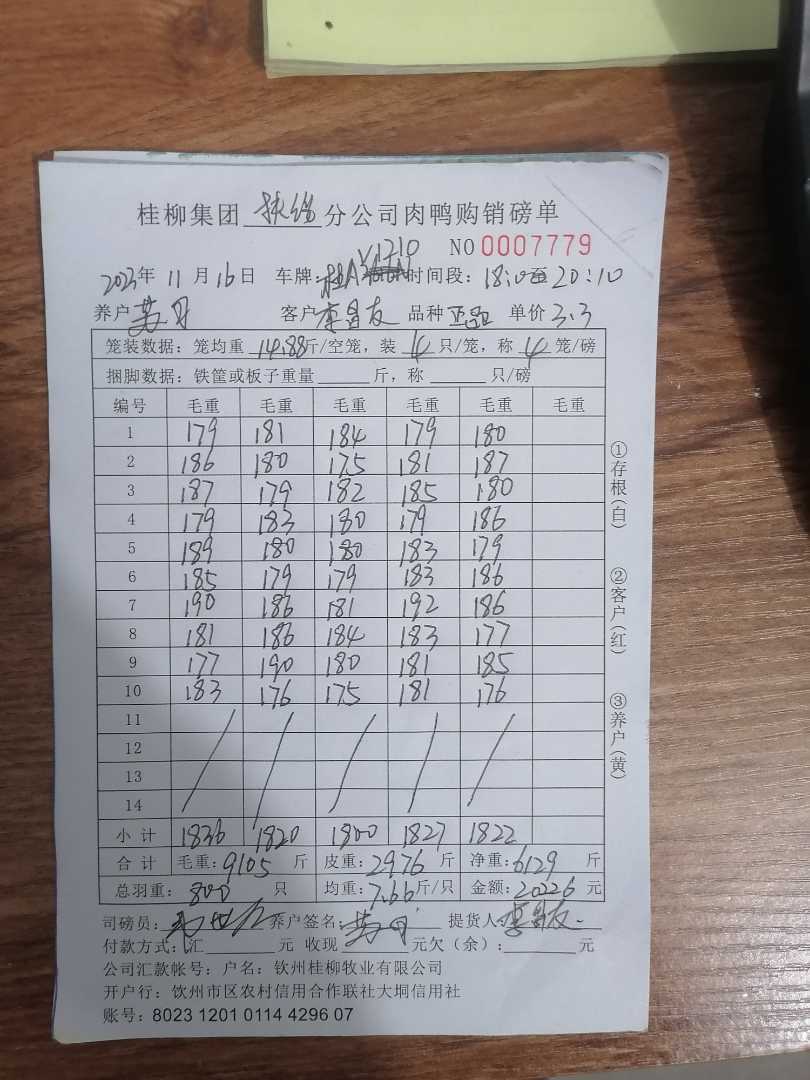 桂柳集团 扶绥 分公司肉鸭购销磅单
NO 0007779
2023年 11 月 16 日 车牌: 桂A 时间段: 18:0至20:10
养户 客户 李昌友 品种 正品 单价 3.3
笼装数据: 笼均重 14.88斤/空笼, 装 4 只/笼, 称 4 笼/磅
捆脚数据: 铁筐或板子重量______斤, 称______只/磅
编号 毛重 毛重 毛重 毛重 毛重 毛重
1 179 181 184 179 180
2 186 180 175 181 187
3 187 179 182 185 180
4 179 183 180 179 186
5 189 180 180 183 179
6 185 179 179 183 186
7 190 186 181 192 186
8 181 186 184 183 177
9 177 190 180 181 185
10 183 176 175 181 176
11
12
13
14
小计 1836 1820 1800 1827 1822
合计 毛重: 9105 斤 皮重: 2976 斤 净重: 6129 斤
总羽重: 800 只 均重: 7.66斤/只 金额: 20226 元
司磅员: 养户签名: 提货人: 李昌友
付款方式: 汇______元 收现______元欠(余):______元
公司汇款帐号: 户名: 钦州桂柳牧业有限公司
开户行: 钦州市区农村信用合作联社大垌信用社
账号: 8023 1201 0114 4296 07
①存根(白)
②客户(红)
③养户(黄)